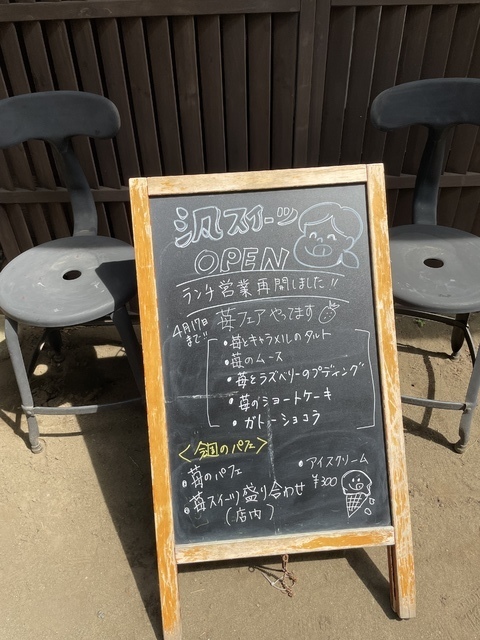 汎スイーツ
OPEN
ランチ営業再開しました!!
4月17日
まで!!
苺フェアやってます
・苺とキャラメルのタルト
・苺のムース
・苺とラズベリーのプディング
・苺のショートケーキ
・ガトーショコラ
<今週のパフェ>
・苺のパフェ
・苺スイーツ盛り合わせ
(店内)
・アイスクリーム
¥300